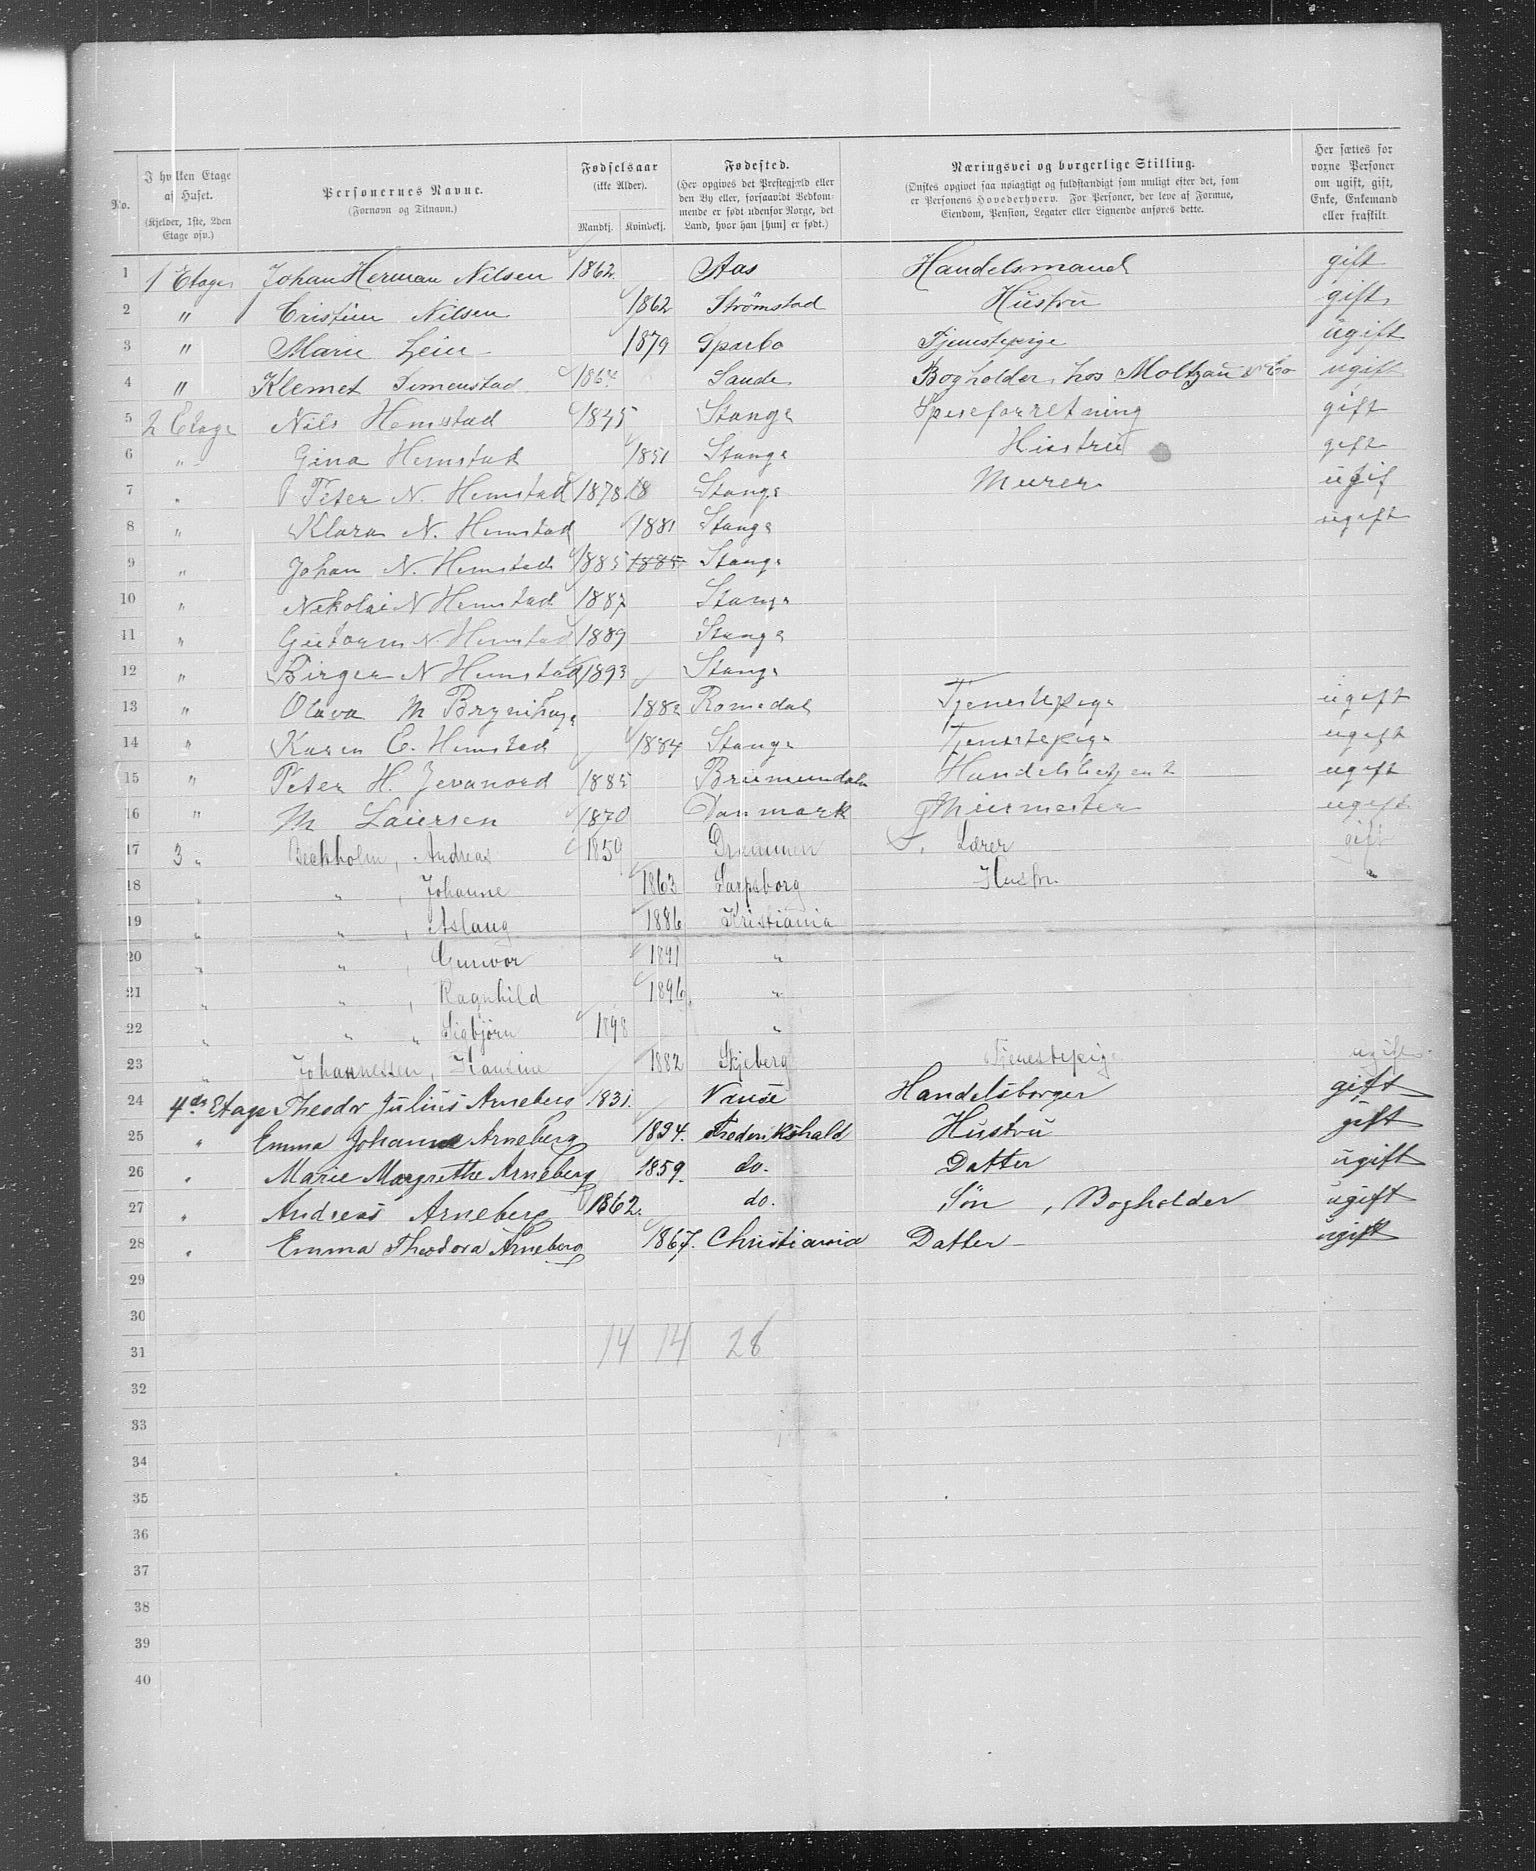 No.
I hvilken Etage af Huset. (Kjelder, 1ste, 2den Etage osv.)
Personernes Navne. (Fornavn og Tilnavn.)
Fødselsaar (ikke Alder). Mandkj. Kvindekj.
Fødested. (Her opgives det Prestegjæld eller den By eller, forsaavidt Bedkommende er født udenfor Norge, det Land, hvor han [hun] er født.)
Næringsvei og borgerlige Stilling. (Ønskes opgivet saa nøiagtigt og fuldstændigt som muligt efter det, som er Personens Hovederhverv. For Personer, der leve af Formue, Eiendom, Pension, Legater eller Lignende anføres dette.
Her sættes for voxne Personer om ugift, gift, Enke, Enkemand eller fraskilt.
1 1 Etage Johan Herman Nilsen 1862 Aas Handelsmand gift
2 " Cristine Nilsen 1862 Strömstad Hustru gift
3 " Marie Leir 1879 Sparbo Tjenestepige ugift
4 " Klemet Simenstad 1864 Sande Bogholder hos Moltzau & Co ugift
5 2 Etage Nils Hemstad 1845 Stange Spiseforretning gift
6 " Gina Hemstad 1851 Stange Hustru gift
7 " Peter N. Hemstad 1878 18 Stange Murer ugif
8 " Klara N. Hemstad 1881 Stange ugift
9 " Johan N. Hemstad 1885 1885 Stange
10 " Nikolai N Hemstad 1887 Stange
11 " Guttorm N Hemstad 1889 Stange
12 " Birger N Hemstad 1893 Stange
13 " Olava M 1882 Romedal Tjenestepige ugift
14 " Karen C. Hemstad 1884 Stange Tjenestepige ugift
15 " Peter H. Jevanord 1885 Brumunddalen Handelsbetjent ugift
16 " M Laursen 1870 Danmark Murmester ugift
17 3 " Bechholm, Andreas 1859 Drammen Lærer gift
18 " " , Johanne 1863 Sarpsborg Hustru "
19 " " , Aslaug 1886 Kristiania
20 " " , Gunvor 1891 "
21 " " , Ragnhild 1896 "
22 " " " Sigbjørn 1898 "
23 " Johannessen, Hansine 1882 Skjeberg Tjenestepige ugift
24 4de Etage Theodor Julius Arneberg 1831. Vinse Handelsborger gift
25 " Emma Johanne Arneberg 1834. Frederikshald Hustru gift
26 " Marie Margrethe Arneberg 1859. do. Datter ugift
27 " Andreas Arneberg 1862. do. Søn, Bogholder ugift
28 " Emma Theodora Arneberg 1867. Christiania Datter ugift
29
30
31 14 14 28
32
33
34
35
36
37
38
39
40